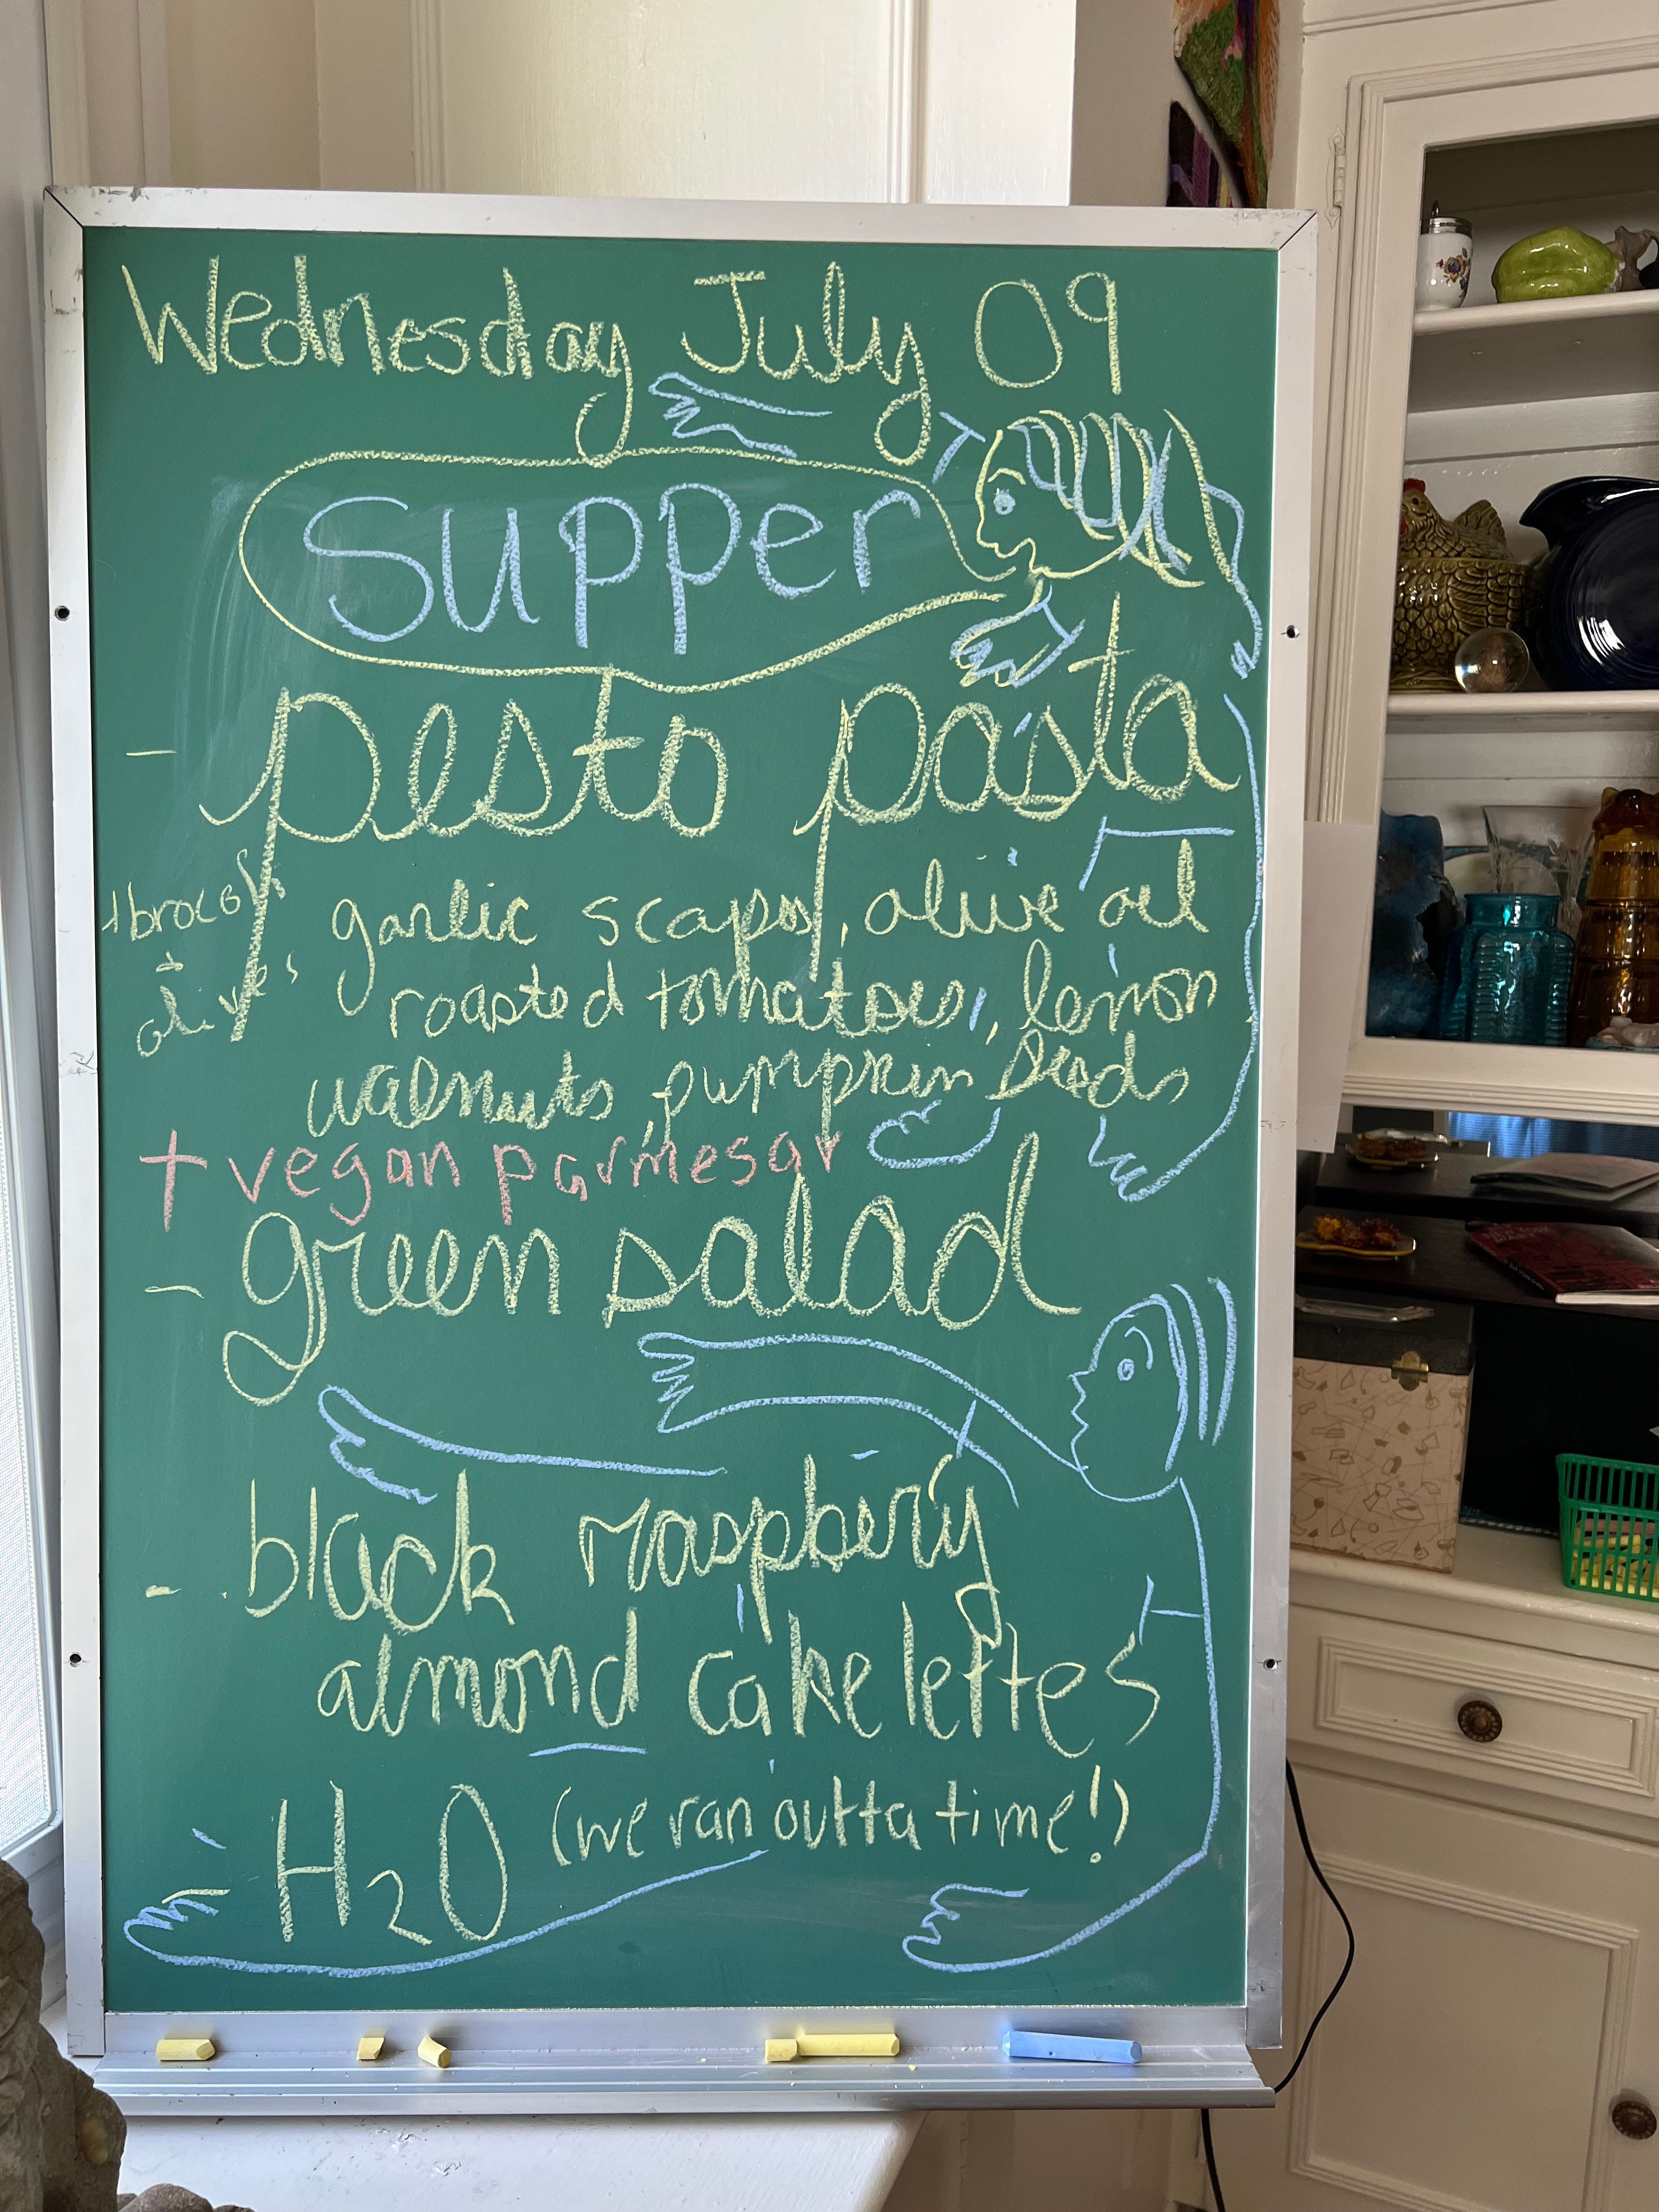 Wednesday July 09
supper
- pesto pasta
garlic scapes, olive oil
roasted tomatoes, lemon
walnuts, pumpkin seeds
+ brocoli
+ olives
+ vegan parmesan
- green salad
- black raspberry
almond cakelettes
- H2O (we ran outta time!)